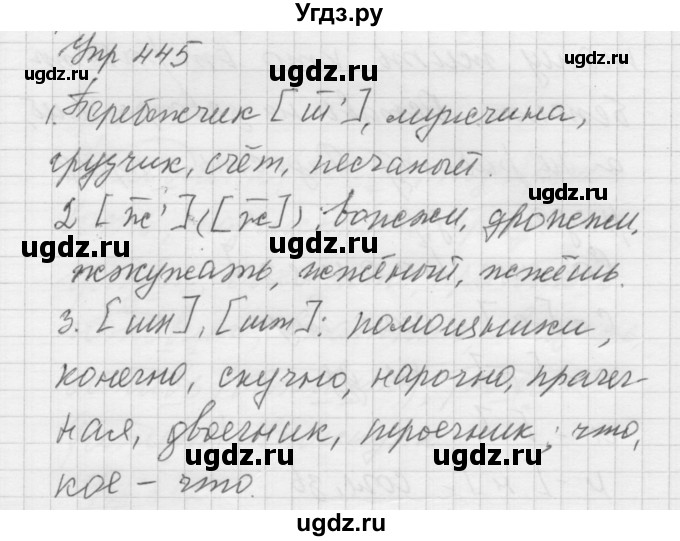 Угдз.ру
Упр 445
ugdz.ru ugdz.ru
1. Перебежчик [ш̅'], мужчина,
грузчик, счёт, песчаный.
ugdz.ru ugdz.ru
2 [ж̅'] ([ж̅]): вожжи, дрожжи,
жжужать, жжёный, жжёшь.
ugdz.ru ugdz.ru
3. [шн], [шт]: помощники,
конечно, скучно, нарочно, прачеч-
ugdz.ru ugdz.ru
ная, двоечник, троечник; что,
ugdz.ru ugdz.ru
кое-что.
ugdz.ru